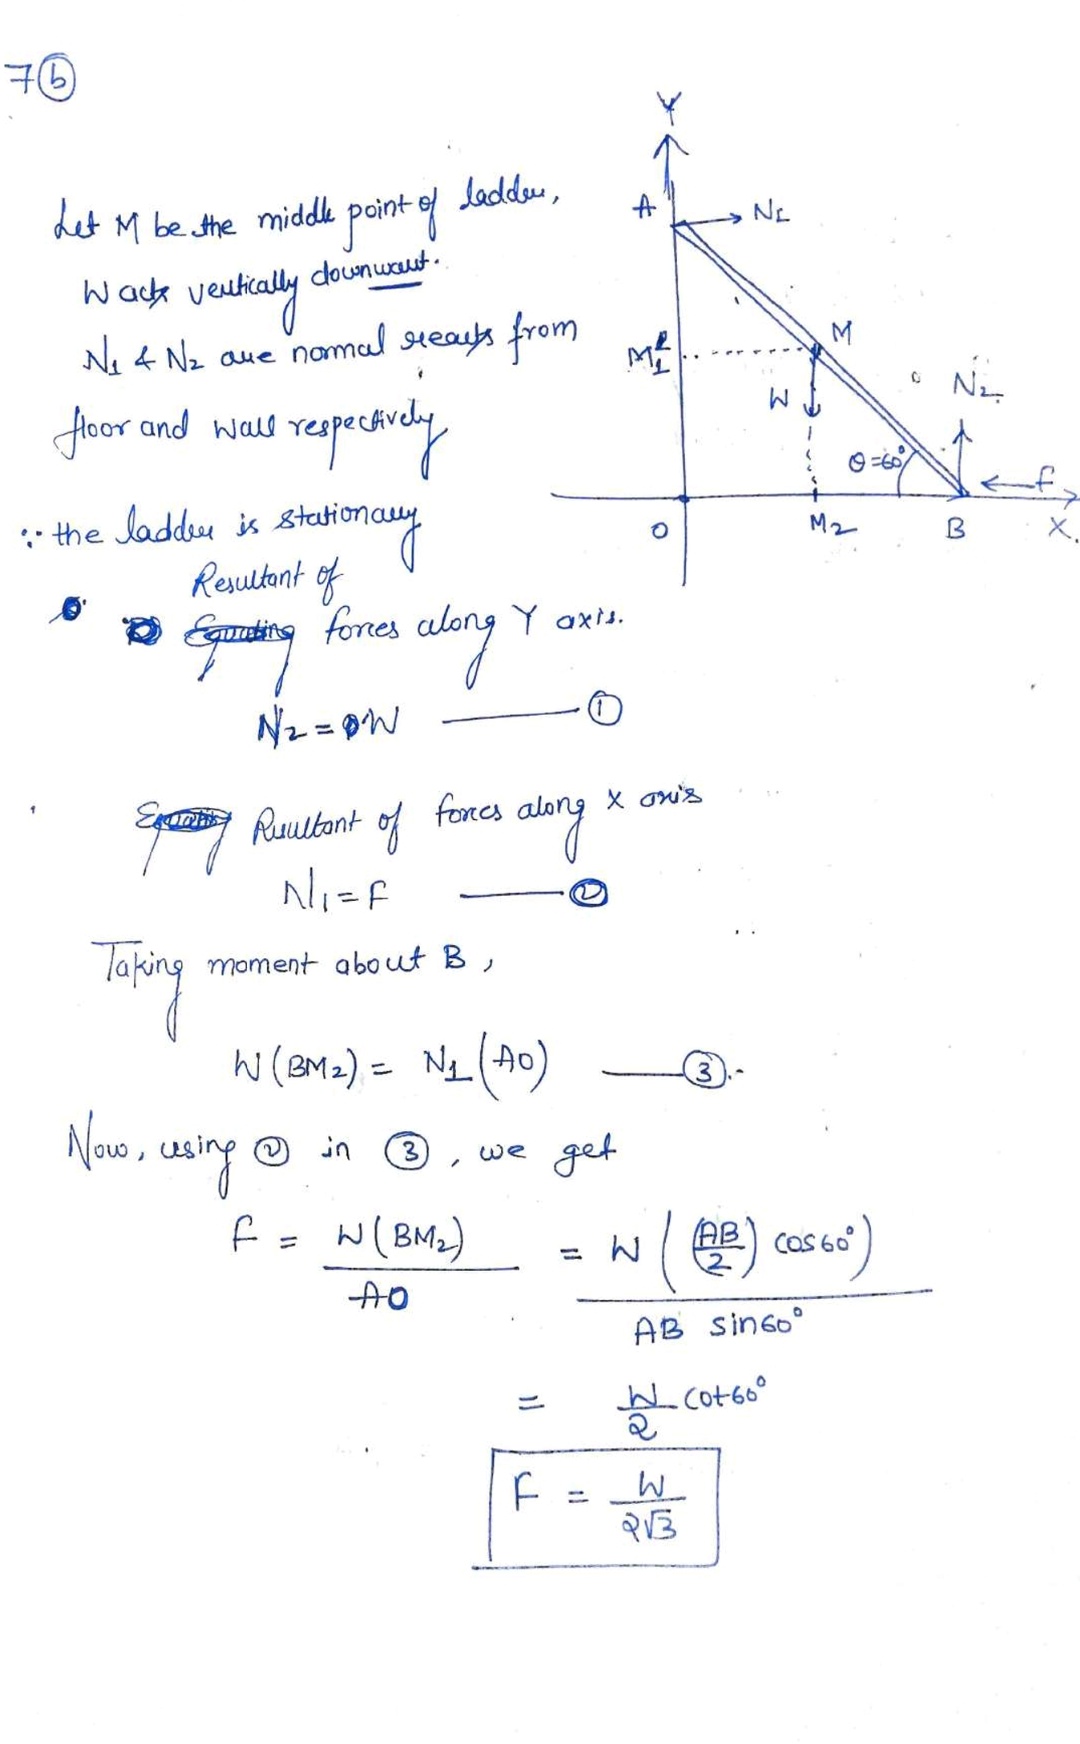 7(b)
Let M be the middle point of ladder,
W acts vertically downward.
N1 & N2 are normal reacts from
floor and wall respectively
∵ the ladder is stationary
Resultant of
forces along Y axis.
N2 = W ——— (1)
Resultant of forces along X axis
N1 = f ——— (2)
Taking moment about B,
W (BM2) = N1 (AO) ——— (3).
Now, using (2) in (3), we get
f = W (BM2) / AO = W ( (AB/2) cos60° ) / AB sin60°
= W/2 cot60°
F = W / 2√3
Y
A
N1
M
M1
N2
W
θ=60°
f
O
M2
B
X.